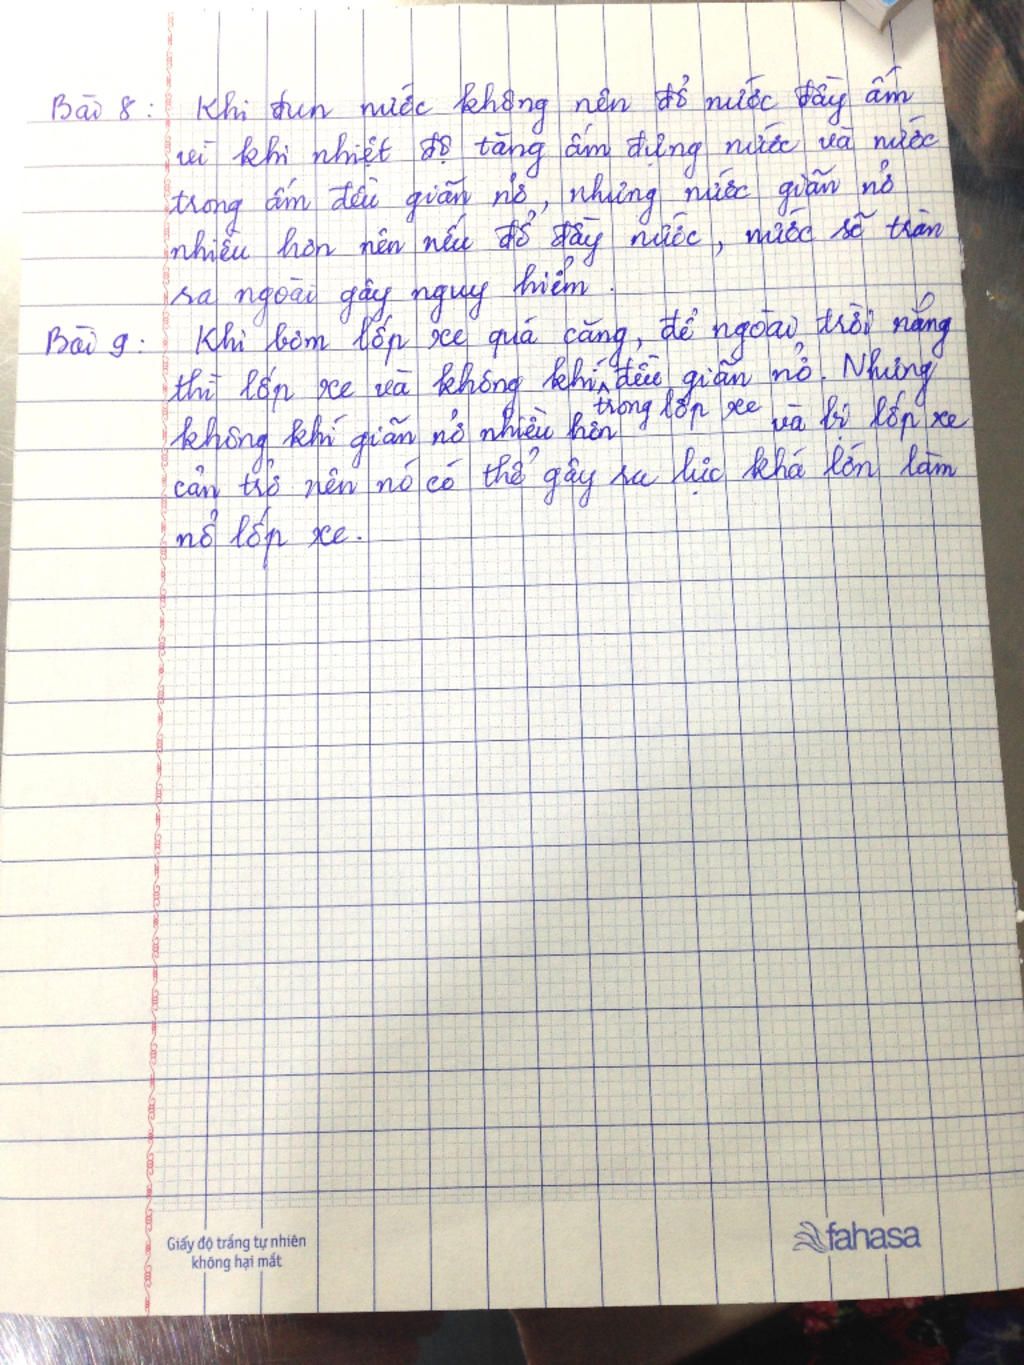 Bài 8: Khi đun nước không nên đổ nước đầy ấm
vì khi nhiệt độ tăng ấm đựng nước và nước
trong ấm đều giãn nở, nhưng nước giãn nở
nhiều hơn nên nếu đổ đầy nước, nước sẽ tràn
ra ngoài gây nguy hiểm.
Bài 9: Khi bơm lốp xe quá căng, để ngoài trời nắng
thì lốp xe và không khí đều giãn nở. Nhưng
trong lốp xe
không khí giãn nở nhiều hơn và bị lốp xe
cản trở nên nó có thể gây ra lực khá lớn làm
nổ lốp xe.
Giấy độ trắng tự nhiên
không hại mắt
fahasa